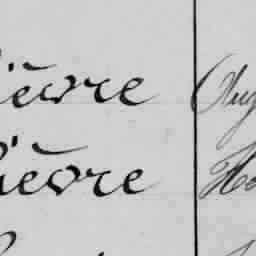 ièvre Aug
ièvre Ho